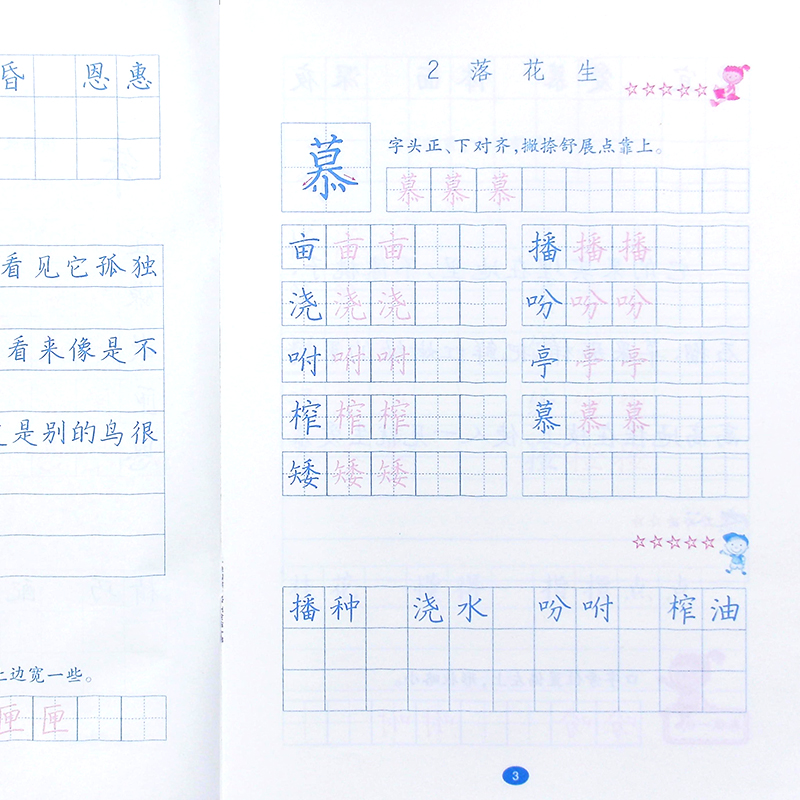 昏 恩 惠
看见它孤独
看来像是不
是别的鸟很
上边宽一些。
匣 匣
2 落 花 生
慕
字头正、下对齐,撇捺舒展点靠上。
慕 慕 慕
亩 亩 亩 播 播 播
浇 浇 浇 吩 吩 吩
咐 咐 咐 亭 亭 亭
榨 榨 榨 慕 慕 慕
矮 矮 矮
播种 浇水 吩咐 榨油
3